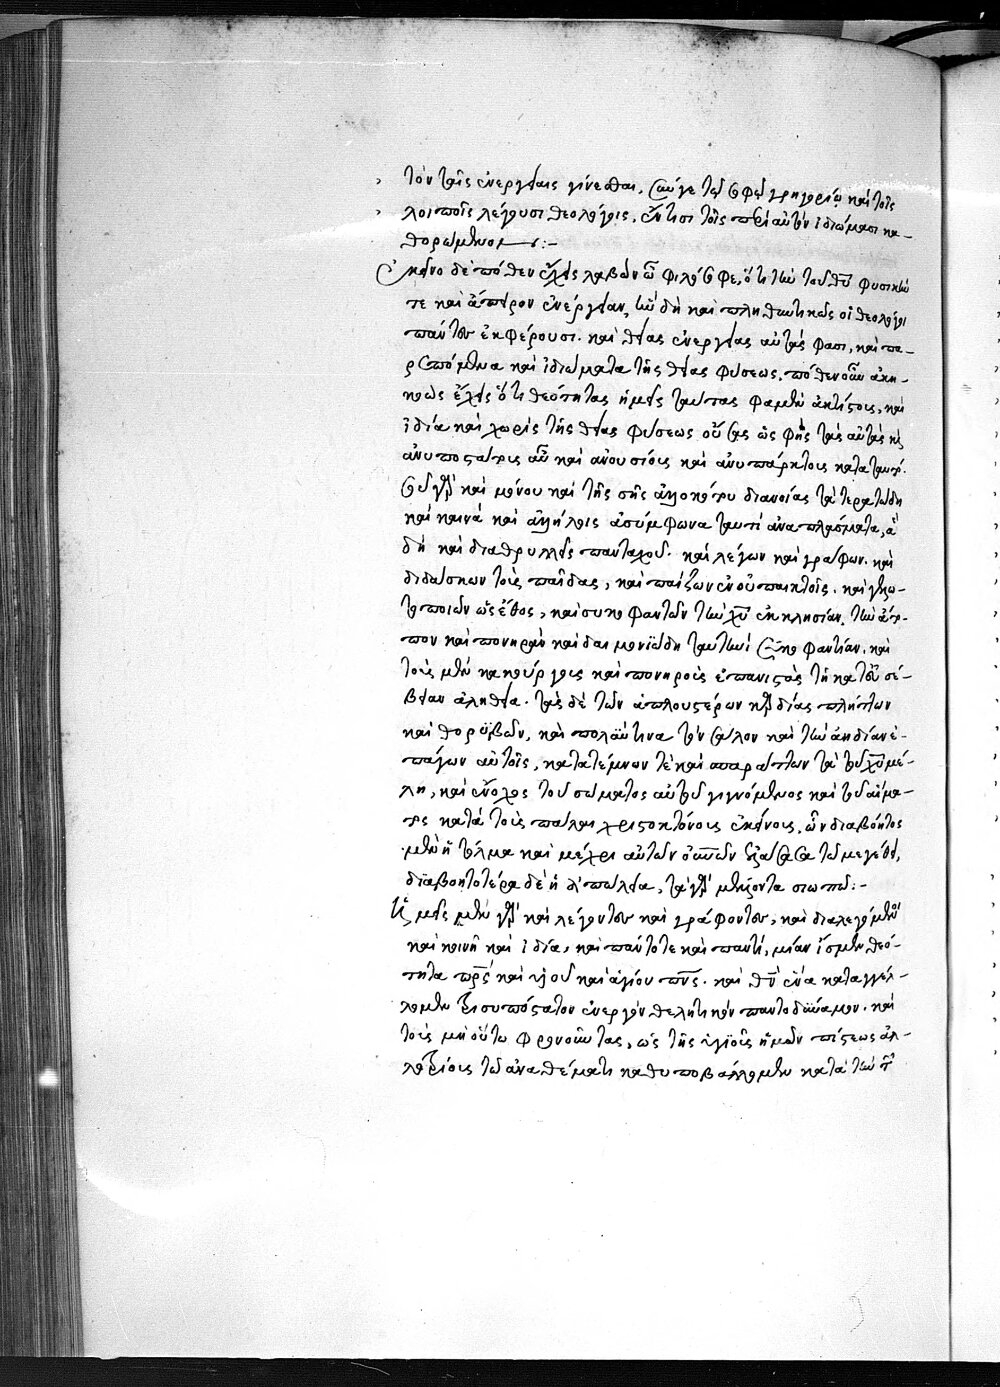 τὸν ταῖς ἐνεργείαις γίνεσθαι, σαυγε τῶ σοφῶ γρηγορίω καὶ τοῖς
λοιποῖς λέγουσι θεολόγοις, ἔν τισι τοῖς περὶ αὐτὸν ἰδιώμασι κα-
θορώμενον :-
Ἐκεῖνο δὲ πόθεν ἔχεις λαβὼν ὦ φιλόσοφε, ὅτι τὴν τοῦ θυ φυσικήν
τε καὶ ἄπειρον ἐνέργειαν, ἣν δὴ καὶ πληθυντικῶς οἱ θεολόγοι
πάντες ἐκφέρουσι. καὶ θείας ἐνεργείας αὐτάς φασι, καὶ πα-
ρεπόμενα καὶ ἰδιώματα τῆς θείας φύσεως. πόθεν οὖν ἀκη-
κοὼς ἔχεις ὅτι θεότητας ἡμεῖς ταύτας φαμὲν ἀκτίστοις, καὶ
ἰδία καὶ χωρὶς τῆς θείας φύσεως οὔσας ὡς φὴς τὰς αὐτὰς καὶ
ἀνυποστάτοις αὖ καὶ ἀνουσίοις καὶ ἀνυπάρκτοις κατὰ ταυτό.
σοῦ γὰρ καὶ μόνου καὶ τῆς σῆς ἀλλοκότου διανοίας τὰ τερατώδη
καὶ καινὰ καὶ ἀλλήλοις ἀσύμφωνα ταυτὶ ἀναπλάσματα, ἃ
δὴ καὶ διαθρυλλεῖς πανταχοῦ. καὶ λέγων καὶ γράφων. καὶ
διδάσκων τοὺς παῖδας, καὶ παίζων ἐν οὐ παικτοῖς. καὶ γελω-
τοποιῶν ὡς ἔθος, καὶ συκοφαντῶν τὴν χυ ἐκκλησίαν, τὴν ἄτο-
πον καὶ πονηρὰν καὶ δαιμονιώδη ταυτηνὶ συκοφαντίαν. καὶ
τοὺς μὲν κακούργοις καὶ πονηροὺς ἐπανιστὰς τῆ κατ' εὐσέ-
βειαν ἀληθεία. τὰς δὲ τῶν ἁπλουστέρων καρδίας πλήττων
καὶ θορυβῶν, καὶ πολὺν τινα τὸν σάλον καὶ τὴν ἀηδίαν ἐ-
πάγων αὐτοῖς, κατατέμνων τὲ καὶ σπαράττων τὰ τοῦ χυ μέ-
λη, καὶ ἔνοχος τοῦ σώματος αὐτοῦ γιγνόμενος καὶ τοῦ αἵμα-
τος κατὰ τοὺς πάλαι χριστοκτόνους ἐκείνους, ὧν διαβόητος
μὲν ἡ τόλμα καὶ μέχρι αὐτῶν οὐνῶν ἐξάσασα τῶ μεγέθει,
διαβοητοτέρα δὲ ἡ ἀπώλεια, τὰ γὰρ μείζονα σιωπῶ :-
Ἡμεῖς μὲν γὰρ καὶ λέγοντες καὶ γράφοντες, καὶ διαλεγόμενοι
καὶ κοινῆ καὶ ἰδία, καὶ πάντοτε καὶ παντὶ, μίαν ἴσμεν θεό-
τητα πρς καὶ υἱοῦ καὶ ἁγίου πνς. καὶ θν ἕνα καταγγέλ-
λομεν τρισυπόστατον ἐνεργὸν θελητικὸν παντοδύναμον. καὶ
τοὺς μὴ οὕτω φρονοῦντας, ὡς τῆς ὑγιοῦς ἡμῶν πίστεως ἀλ-
λοτρίους τῶ ἀναθέματι καθυποβάλλομεν κατὰ τὴν τ